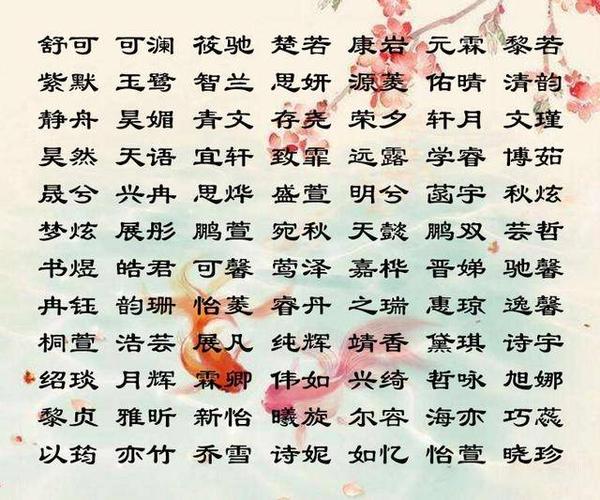 舒可 可澜 筱驰 楚若 康岩 元霖 黎若
紫默 玉鹭 智兰 思妍 源菱 佑晴 清韵
静舟 昊媚 青文 存尧 荣夕 轩月 文瑾
昊然 天语 宜轩 致霏 远露 学睿 博茹
晟兮 兴冉 思烨 盛萱 明兮 菡宇 秋炫
梦炫 展彤 鹏萱 宛秋 天懿 鹏双 芸哲
书煜 皓君 可馨 莺泽 嘉桦 晋娣 驰馨
冉钰 韵珊 怡菱 睿丹 之瑞 惠琼 逸馨
桐萱 浩芸 展凡 纯辉 靖香 黛琪 诗宇
绍琰 月辉 霖卿 伟如 兴绮 哲咏 旭娜
黎贞 雅昕 新怡 曦旋 尔容 海亦 巧蕊
以筠 亦竹 乔雪 诗妮 如忆 怡萱 晓珍